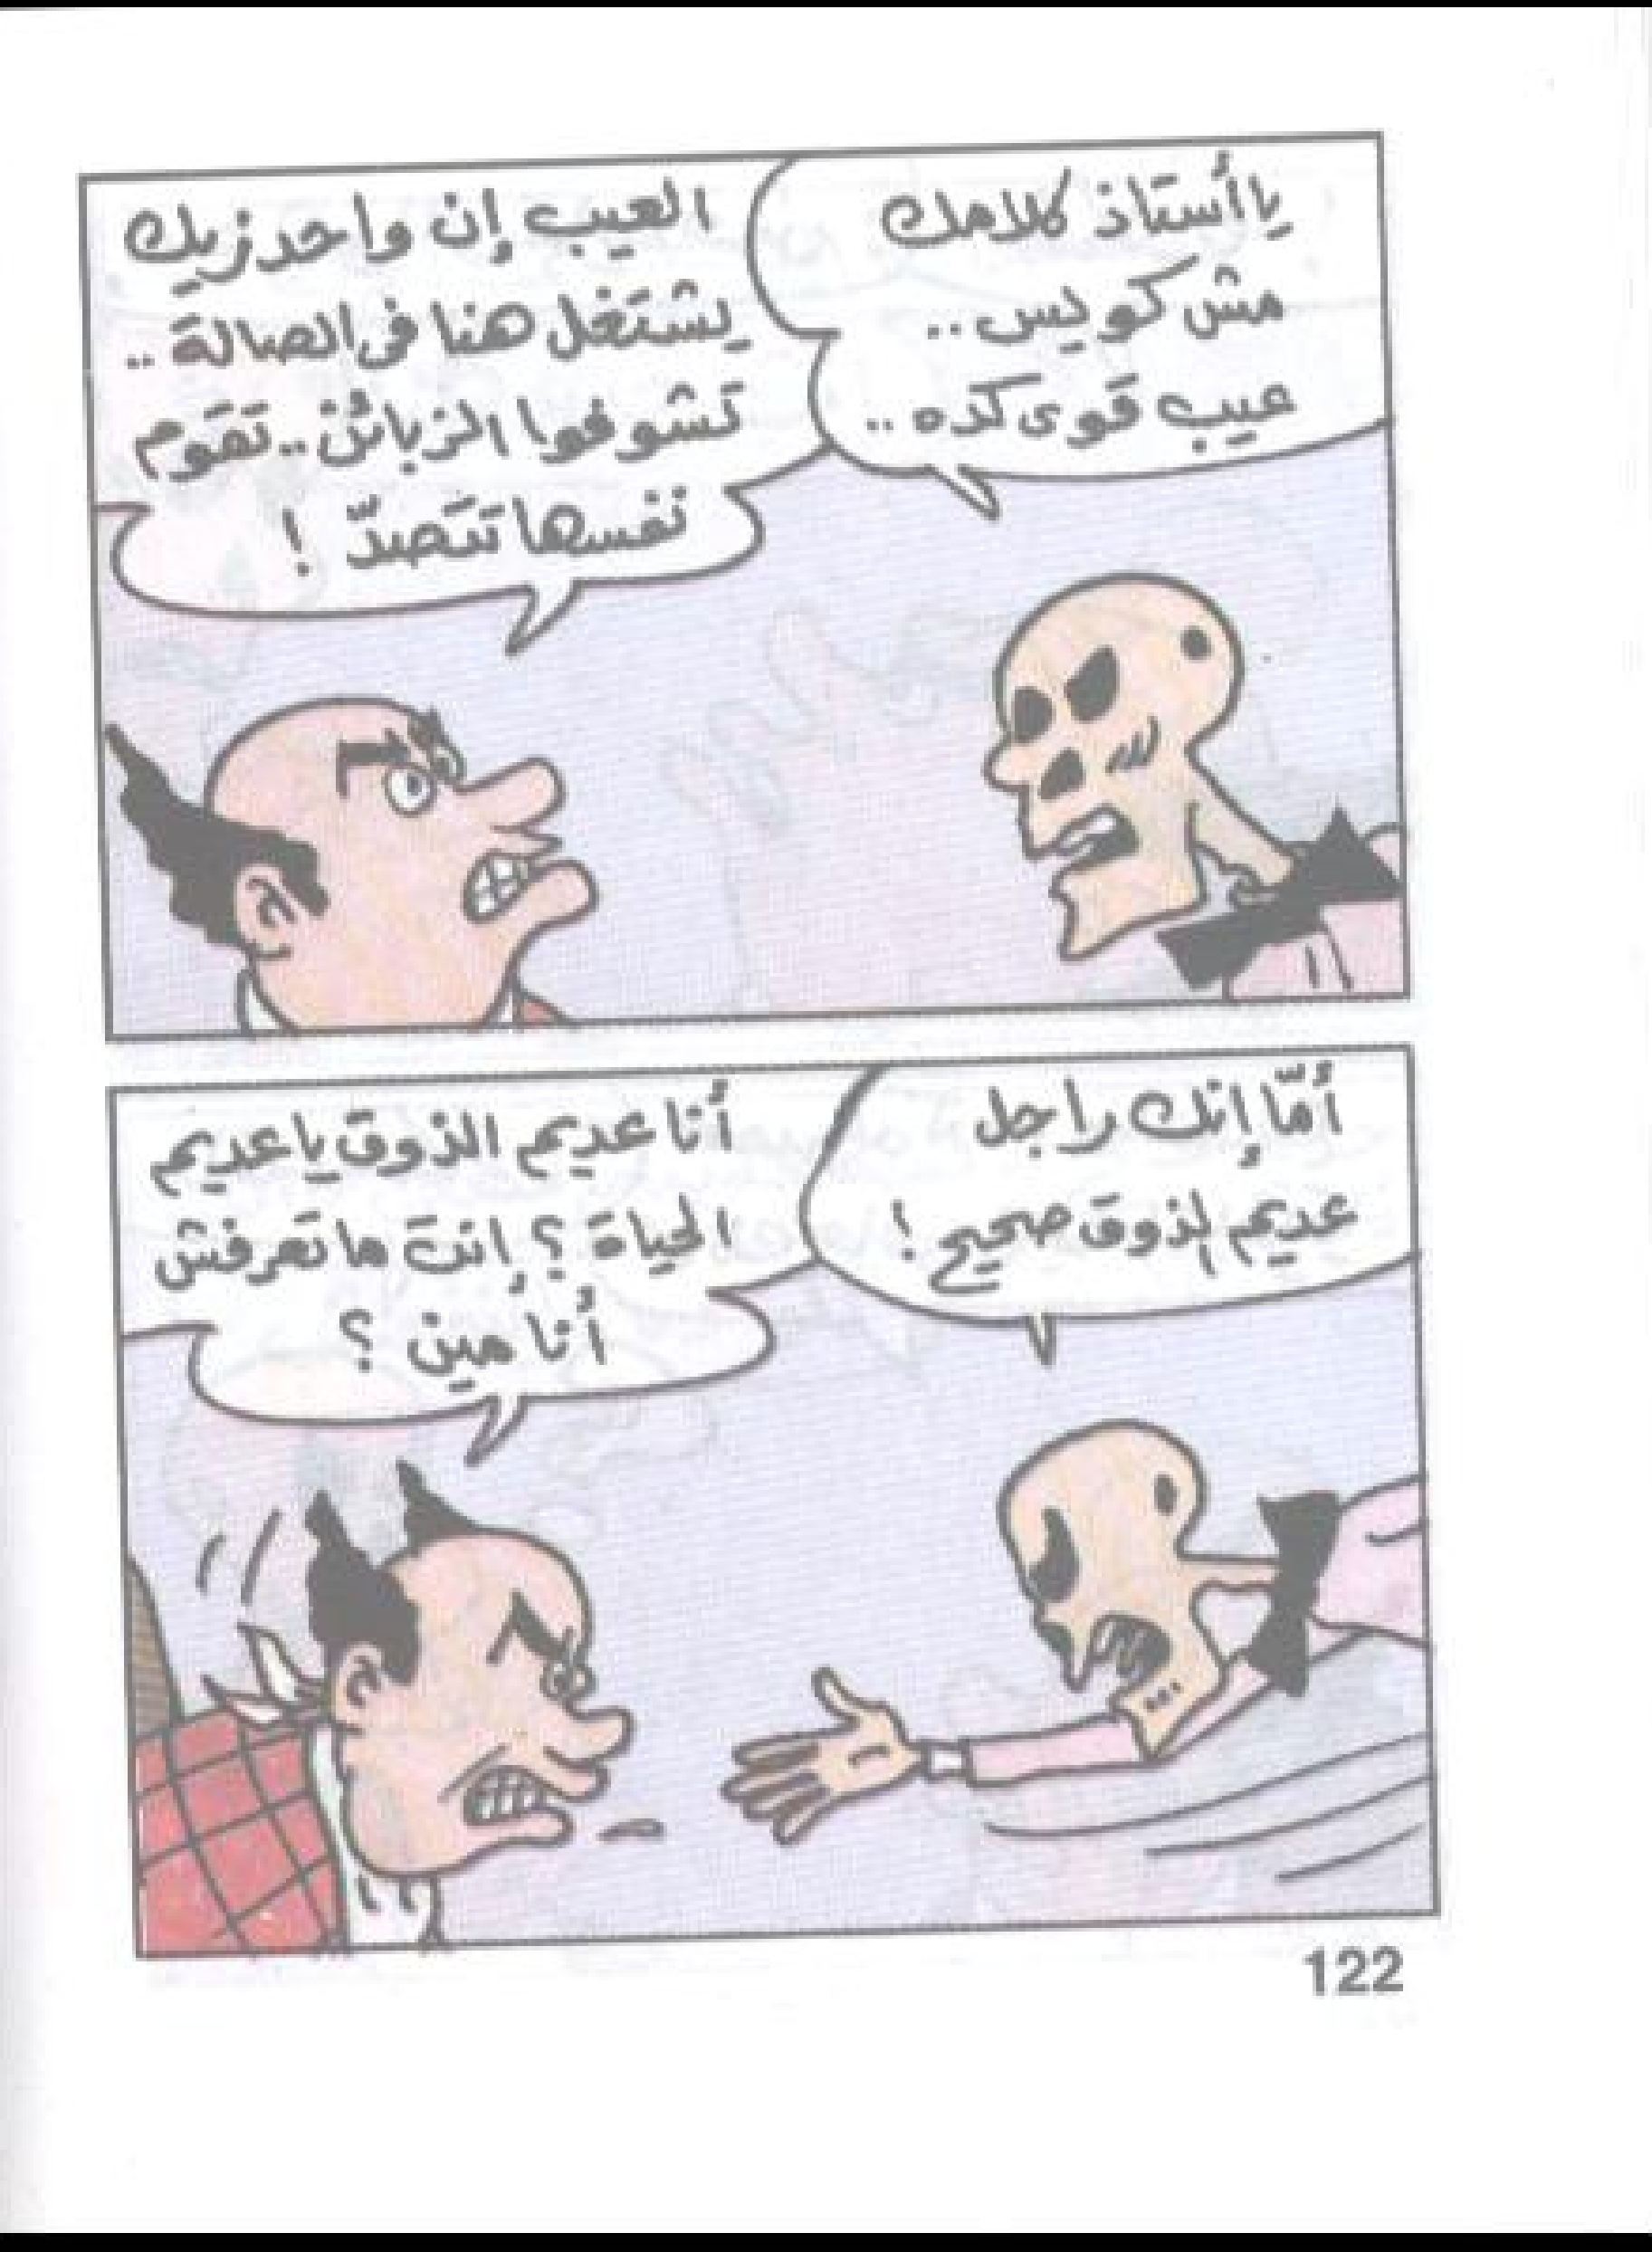 يا أستاذ كلامك
مش كويس..
عيب قوى كده..
العيب إن واحد زيك
يشتغل هنا فى الصالة..
تشوفها الزبائن.. تقوم
نفسها تتصدّ !
أمّا إنك راجل
عديم الذوق صحيح !
أنا عديم الذوق يا عديم
الحياة ؟ إنت ما تعرفش
أنا مين ؟
122